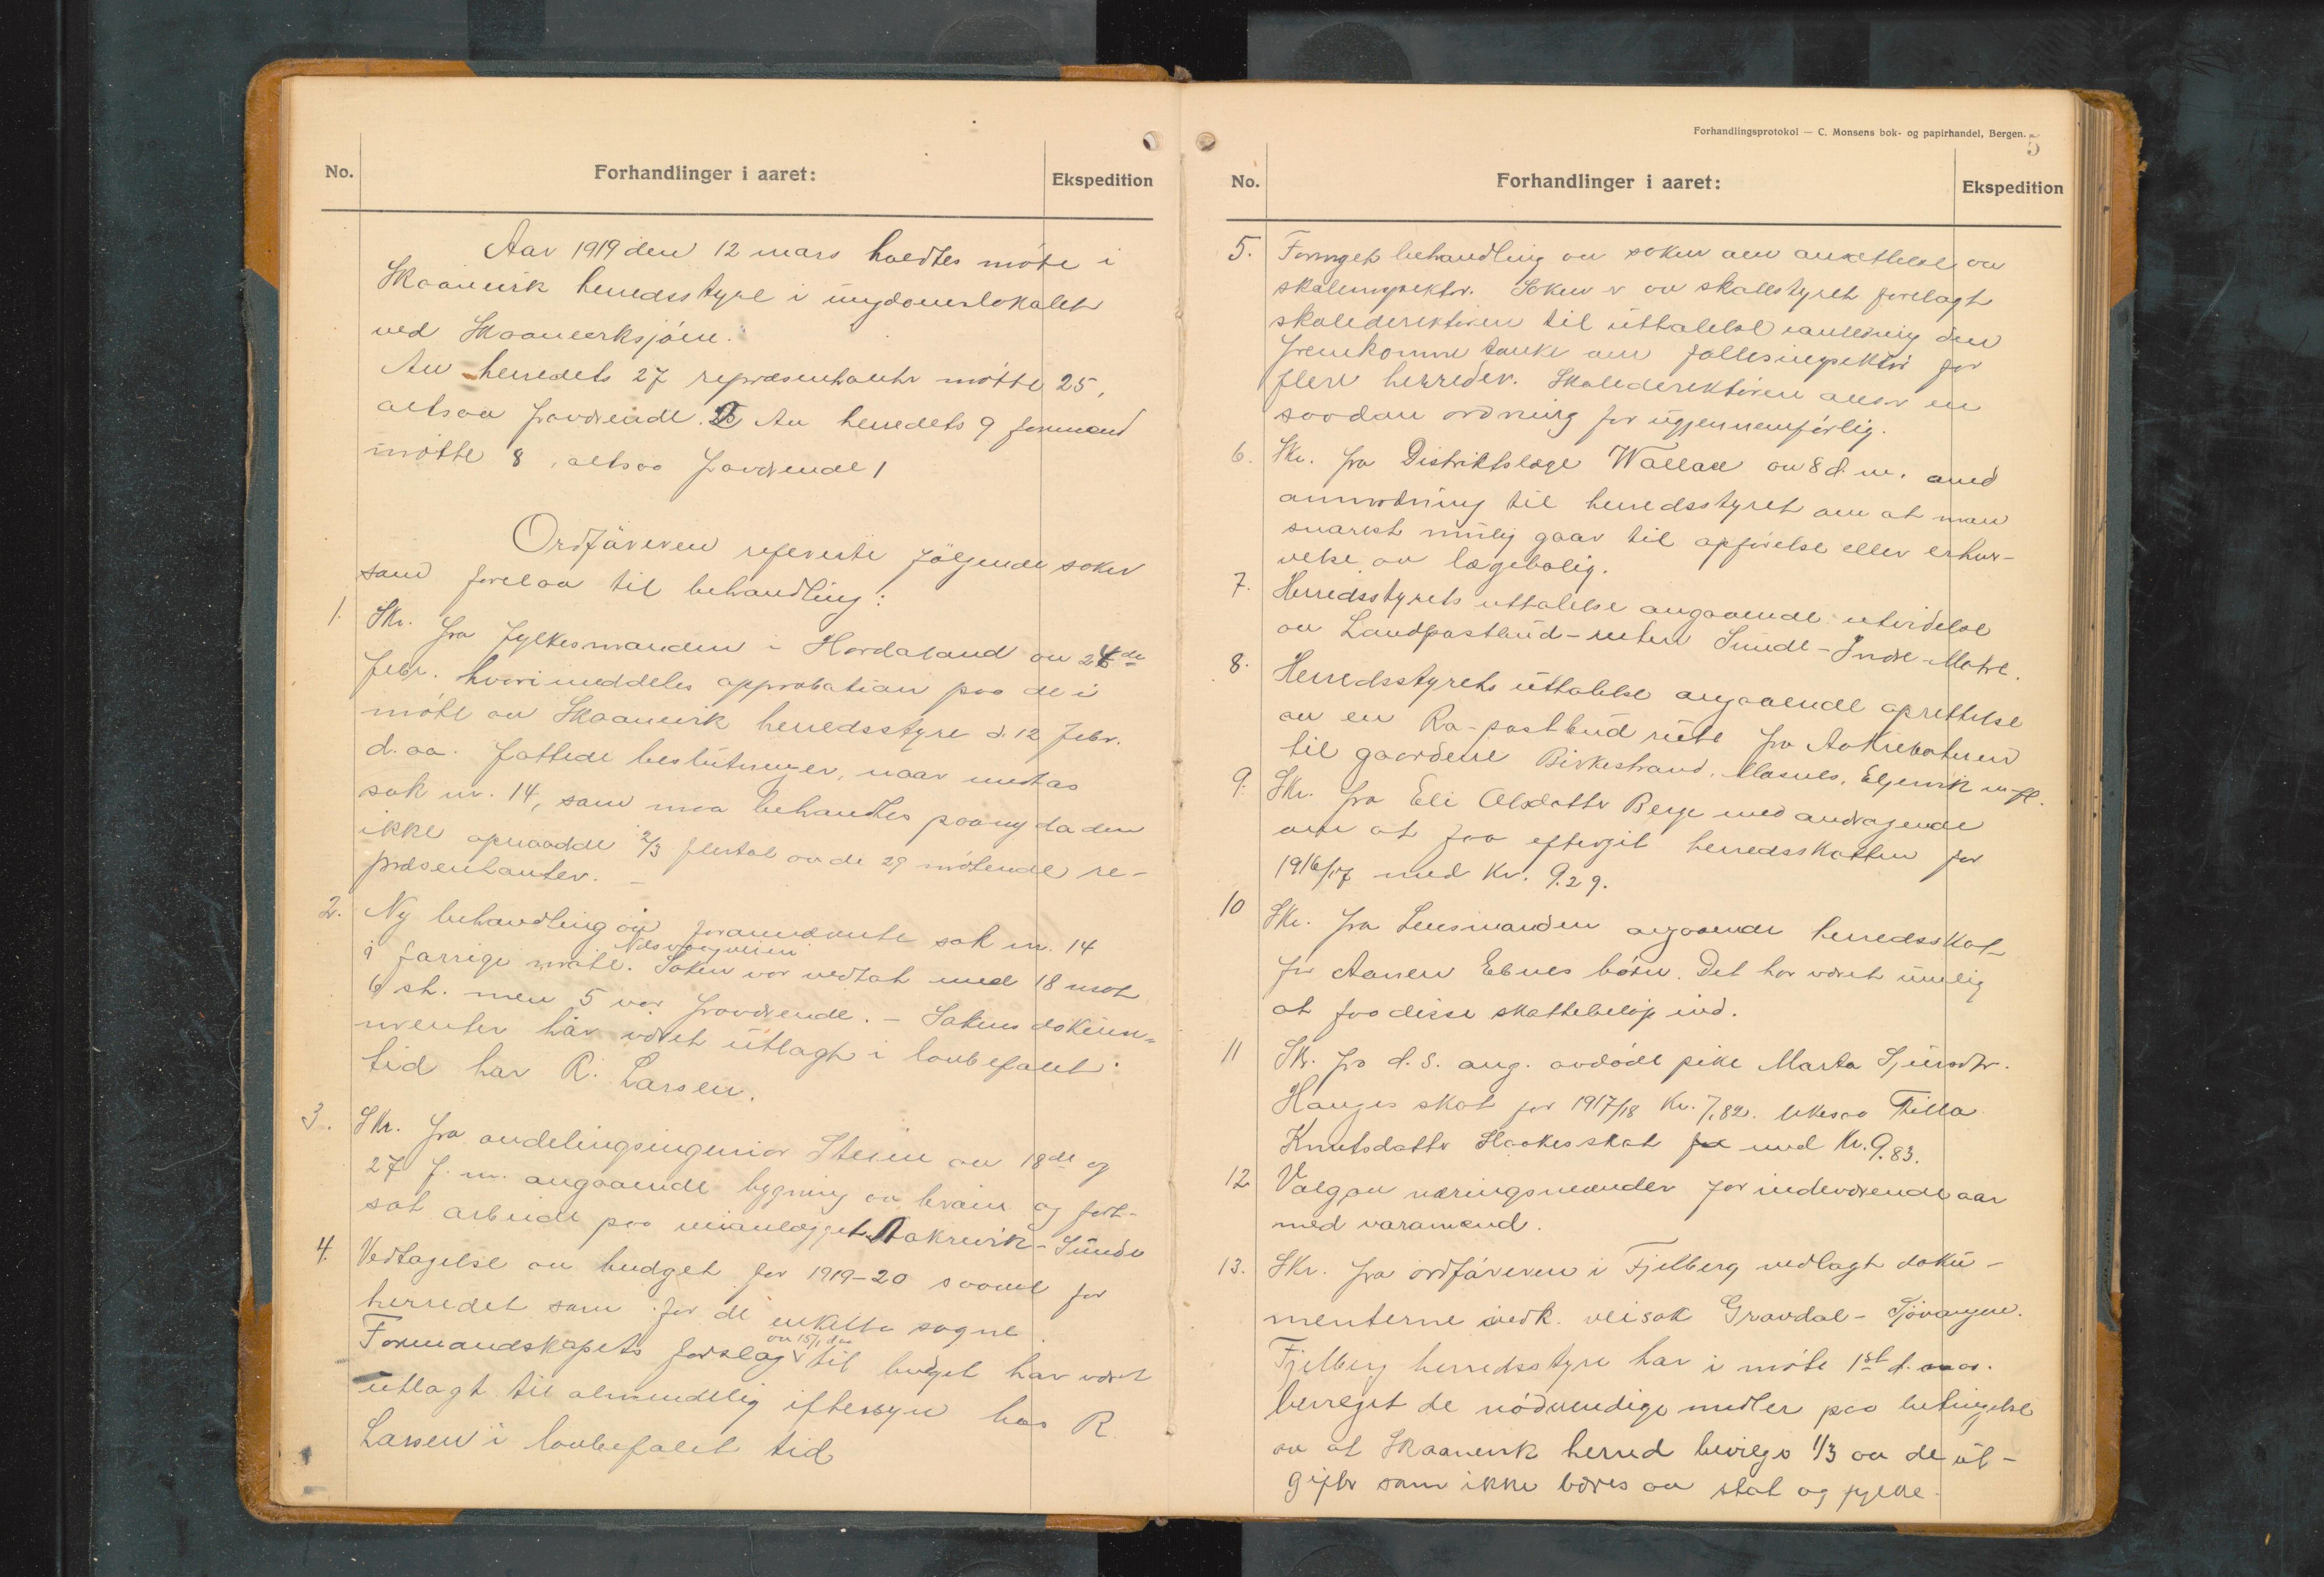 No.
Forhandlinger i aaret:
Ekspedition
Aar 1919 den 12 mars holdtes møte i
Skaanevik herredsstyre i ungdomslokalet
ved Skaaneviksjøen.
Av herredets 27 repræsentanter møtte 25,
altsaa fraværende 2. Av herredets 9 formænd
møtte 8, altsaa fraværende 1
Ordføreren refererte følgende saker
som forelaa til behandling:
1. Skr. fra fylkesmanden i Hordaland av 24de
febr. hvori meddeles approbation paa de i
møte av Skaanevik herredsstyre d. 12 febr.
d. aa. fattede beslutninger, naar undtas
sak nr. 14, som maa behandles paany da den
ikke opnaadde 2/3 flertal av de 29 møtende re-
præsentanter. –
2. Ny behandling av forannævnte sak nr. 14
Næsvangveien
i forrige møte. Saken var vedtat med 18 mot
6 st. men 5 var fraværende. – Sakens doku-
menter har været utlagt i lovbefalet
tid hos R. Larsen.
3. Skr. fra avdelingsingeniør Steine av 18de og
27 f. m. angaaende bygning av kraner og fort-
sat arbeide paa veianlægget Aakrevik-Sunde
4. Vedtagelse av budget for 1919-20 saavel for
herredet som for de enkelte sogne.
av 15/1 d. aa.
Formandskapets forslag til budget har været
utlagt til almindelig eftersyn hos R.
Larsen i lovbefalet tid
Forhandlingsprotokol — C. Monsens bok- og papirhandel, Bergen.
5
No.
Forhandlinger i aaret:
Ekspedition
5. Fornyet behandling av saken om ansættelse av
skoleinspektør. Saken er av skolestyret forelagt
skoledirektøren til uttalelse i anledning den
fremkomne tanke om fællesinspektør for
flere herreder. Skoledirektøren anser en
saadan ordning for ugjennemførlig.
6. Skr. fra Distriktslæge Wallace av 8 d. m. med
anmodning til herredsstyret om at man
snarest mulig gaar til opførelse eller erhver-
velse av lægebolig.
7. Herredsstyrets uttalelse angaaende utvidelse
av Landpostbud-ruten Sunde-Indre Matre.
8. Herredsstyrets uttalelse angaaende oprettelse
av en Ra-postbud rute fra Aakrebotnen
til gaardene Birkestrand, Masnes, Eljervik m. fl.
9. Skr. fra Eli Olsdatter Berge med andragende
om at faa eftergit herredsskatten for
1916/17 med Kr. 9.29.
10 Skr. fra Lensmanden angaaende herredsskat
for Aanen Ebnes børn. Det har været umulig
at faa disse skattebeløp ind.
11 Skr. fra d. s. ang. avdøde pike Marta Sjursdtr.
Hauges skat for 1917/18 Kr. 7,82. likesaa Tilla
Knutsdatter Haakes skat med Kr. 9.83.
12 Valg av næringsnævnder for indeværende aar
med varamænd.
13. Skr. fra ordføreren i Fjelberg vedlagt doku-
menterne vedk. veisak Gravdal-Tjøvangen.
Fjelberg herredsstyre har i møte 1st d. m.
bevilget de nødvendige midler paa betingelse
av at Skaanevik herred bevilger 1/3 av de ut-
gifter som ikke bæres av stat og fylke.